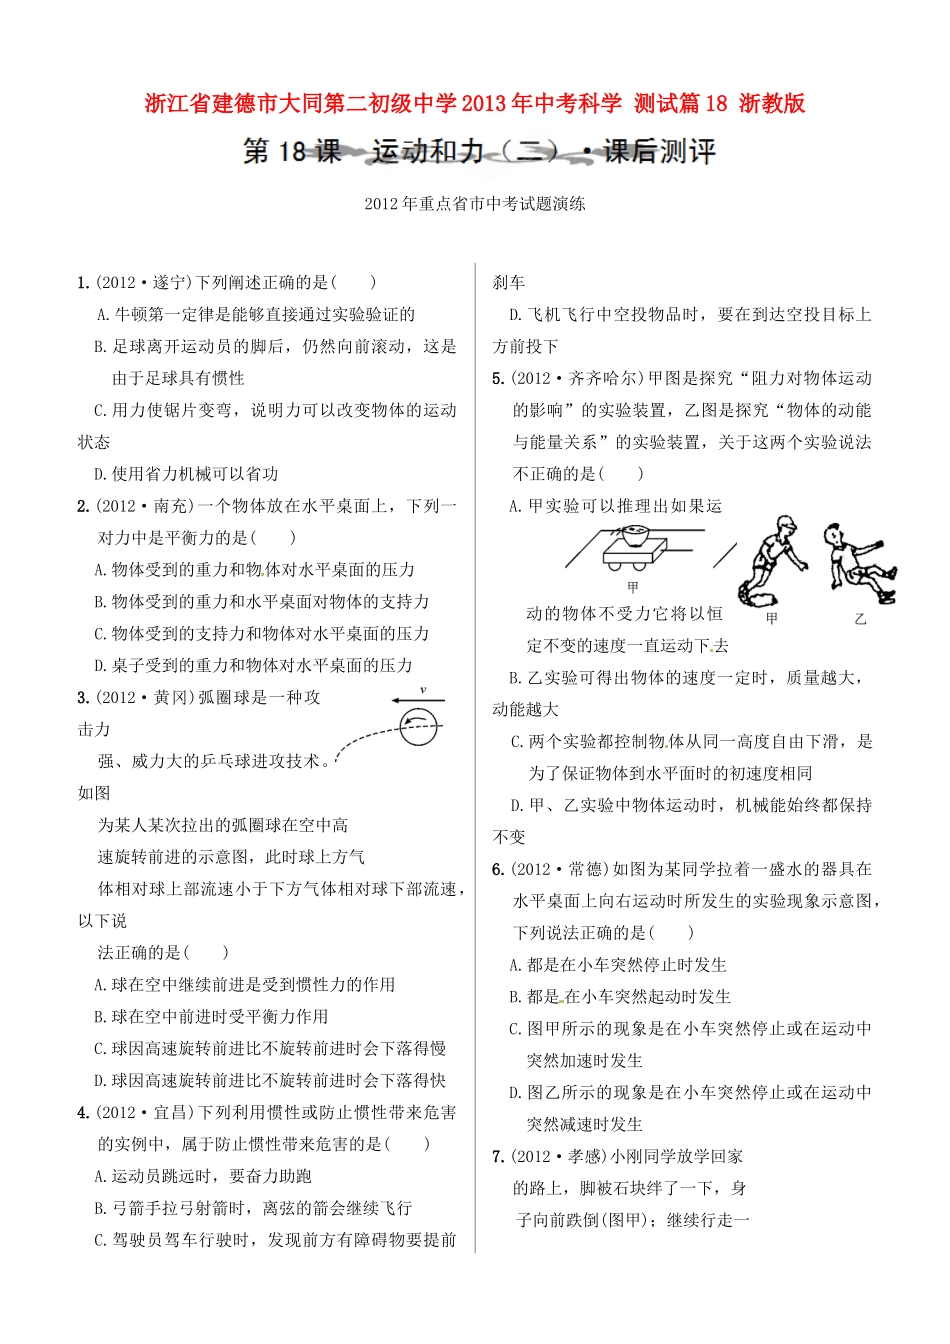 浙江省建德市大同第二初级中学2013年中考科学 测试篇18 浙教版
第18课 运动和力(二)·课后测评
2012年重点省市中考试题演练
1.(2012·遂宁)下列阐述正确的是(　　)
A.牛顿第一定律是能够直接通过实验验证的
B.足球离开运动员的脚后，仍然向前滚动，这是
由于足球具有惯性
C.用力使锯片变弯，说明力可以改变物体的运动
状态
D.使用省力机械可以省功
2.(2012·南充)一个物体放在水平桌面上，下列一
对力中是平衡力的是(　　)
A.物体受到的重力和物体对水平桌面的压力
B.物体受到的重力和水平桌面对物体的支持力
C.物体受到的支持力和物体对水平桌面的压力
D.桌子受到的重力和物体对水平桌面的压力
3.(2012·黄冈)弧圈球是一种攻
击力
强、威力大的乒乓球进攻技术。
如图
为某人某次拉出的弧圈球在空中高
速旋转前进的示意图，此时球上方气
体相对球上部流速小于下方气体相对球下部流速，
以下说
法正确的是(　　)
v
A.球在空中继续前进是受到惯性力的作用
B.球在空中前进时受平衡力作用
C.球因高速旋转前进比不旋转前进时会下落得慢
D.球因高速旋转前进比不旋转前进时会下落得快
4.(2012·宜昌)下列利用惯性或防止惯性带来危害
的实例中，属于防止惯性带来危害的是(　　)
A.运动员跳远时，要奋力助跑
B.弓箭手拉弓射箭时，离弦的箭会继续飞行
C.驾驶员驾车行驶时，发现前方有障碍物要提前
刹车
D.飞机飞行中空投物品时，要在到达空投目标上
方前投下
5.(2012·齐齐哈尔)甲图是探究“阻力对物体运动
的影响”的实验装置，乙图是探究“物体的动能
与能量关系”的实验装置，关于这两个实验说法
不正确的是(　　)
A.甲实验可以推理出如果运
甲
甲 乙
动的物体不受力它将以恒
定不变的速度一直运动下去
B.乙实验可得出物体的速度一定时，质量越大，
动能越大
C.两个实验都控制物体从同一高度自由下滑，是
为了保证物体到水平面时的初速度相同
D.甲、乙实验中物体运动时，机械能始终都保持
不变
6.(2012·常德)如图为某同学拉着一盛水的器具在
水平桌面上向右运动时所发生的实验现象示意图，
下列说法正确的是(　　)
A.都是在小车突然停止时发生
B.都是在小车突然起动时发生
C.图甲所示的现象是在小车突然停止或在运动中
突然加速时发生
D.图乙所示的现象是在小车突然停止或在运动中
突然减速时发生
7.(2012·孝感)小刚同学放学回家
的路上，脚被石块绊了一下，身
子向前跌倒(图甲)；继续行走一